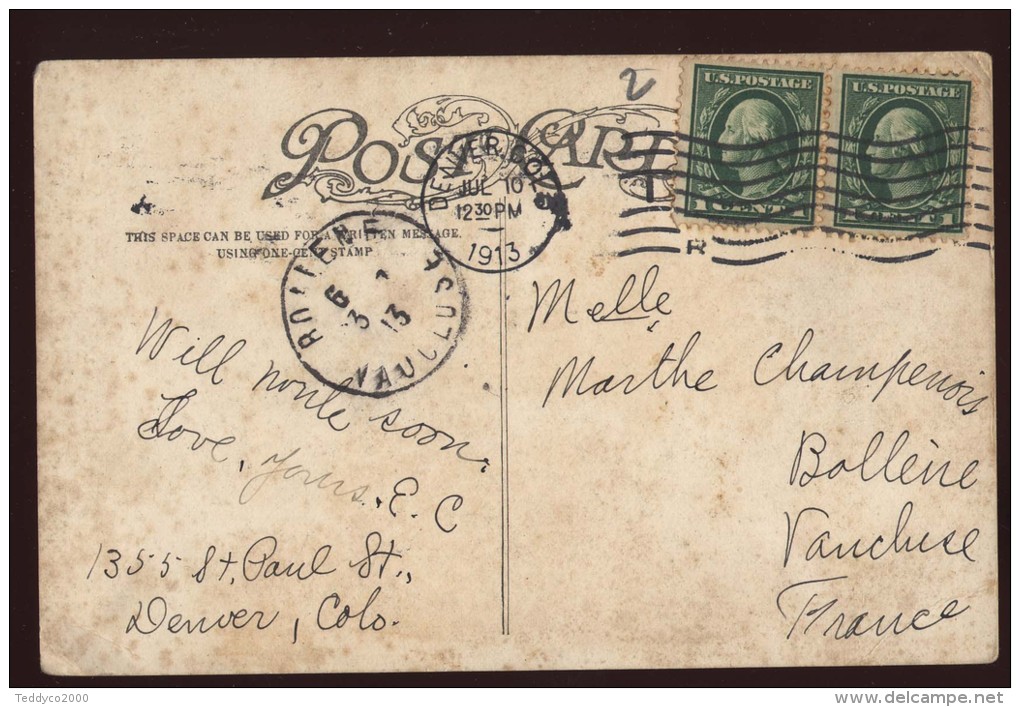 2
POST CARD
U.S.POSTAGE
1 CENT 1
U.S.POSTAGE
1 CENT 1
DENVER, COLO.
JUL 10
12 30 PM
1913
R
THIS SPACE CAN BE USED FOR A WRITTEN MESSAGE.
USING ONE-CENT STAMP
BOLLENE
VAUCLUSE
13
Will write soon.
Love, Yours, E. C
1355 St. Paul St.,
Denver, Colo.
Melle
Marthe Champenois
Bollène
Vaucluse
France
Teddyco2000
www.delcampe.net